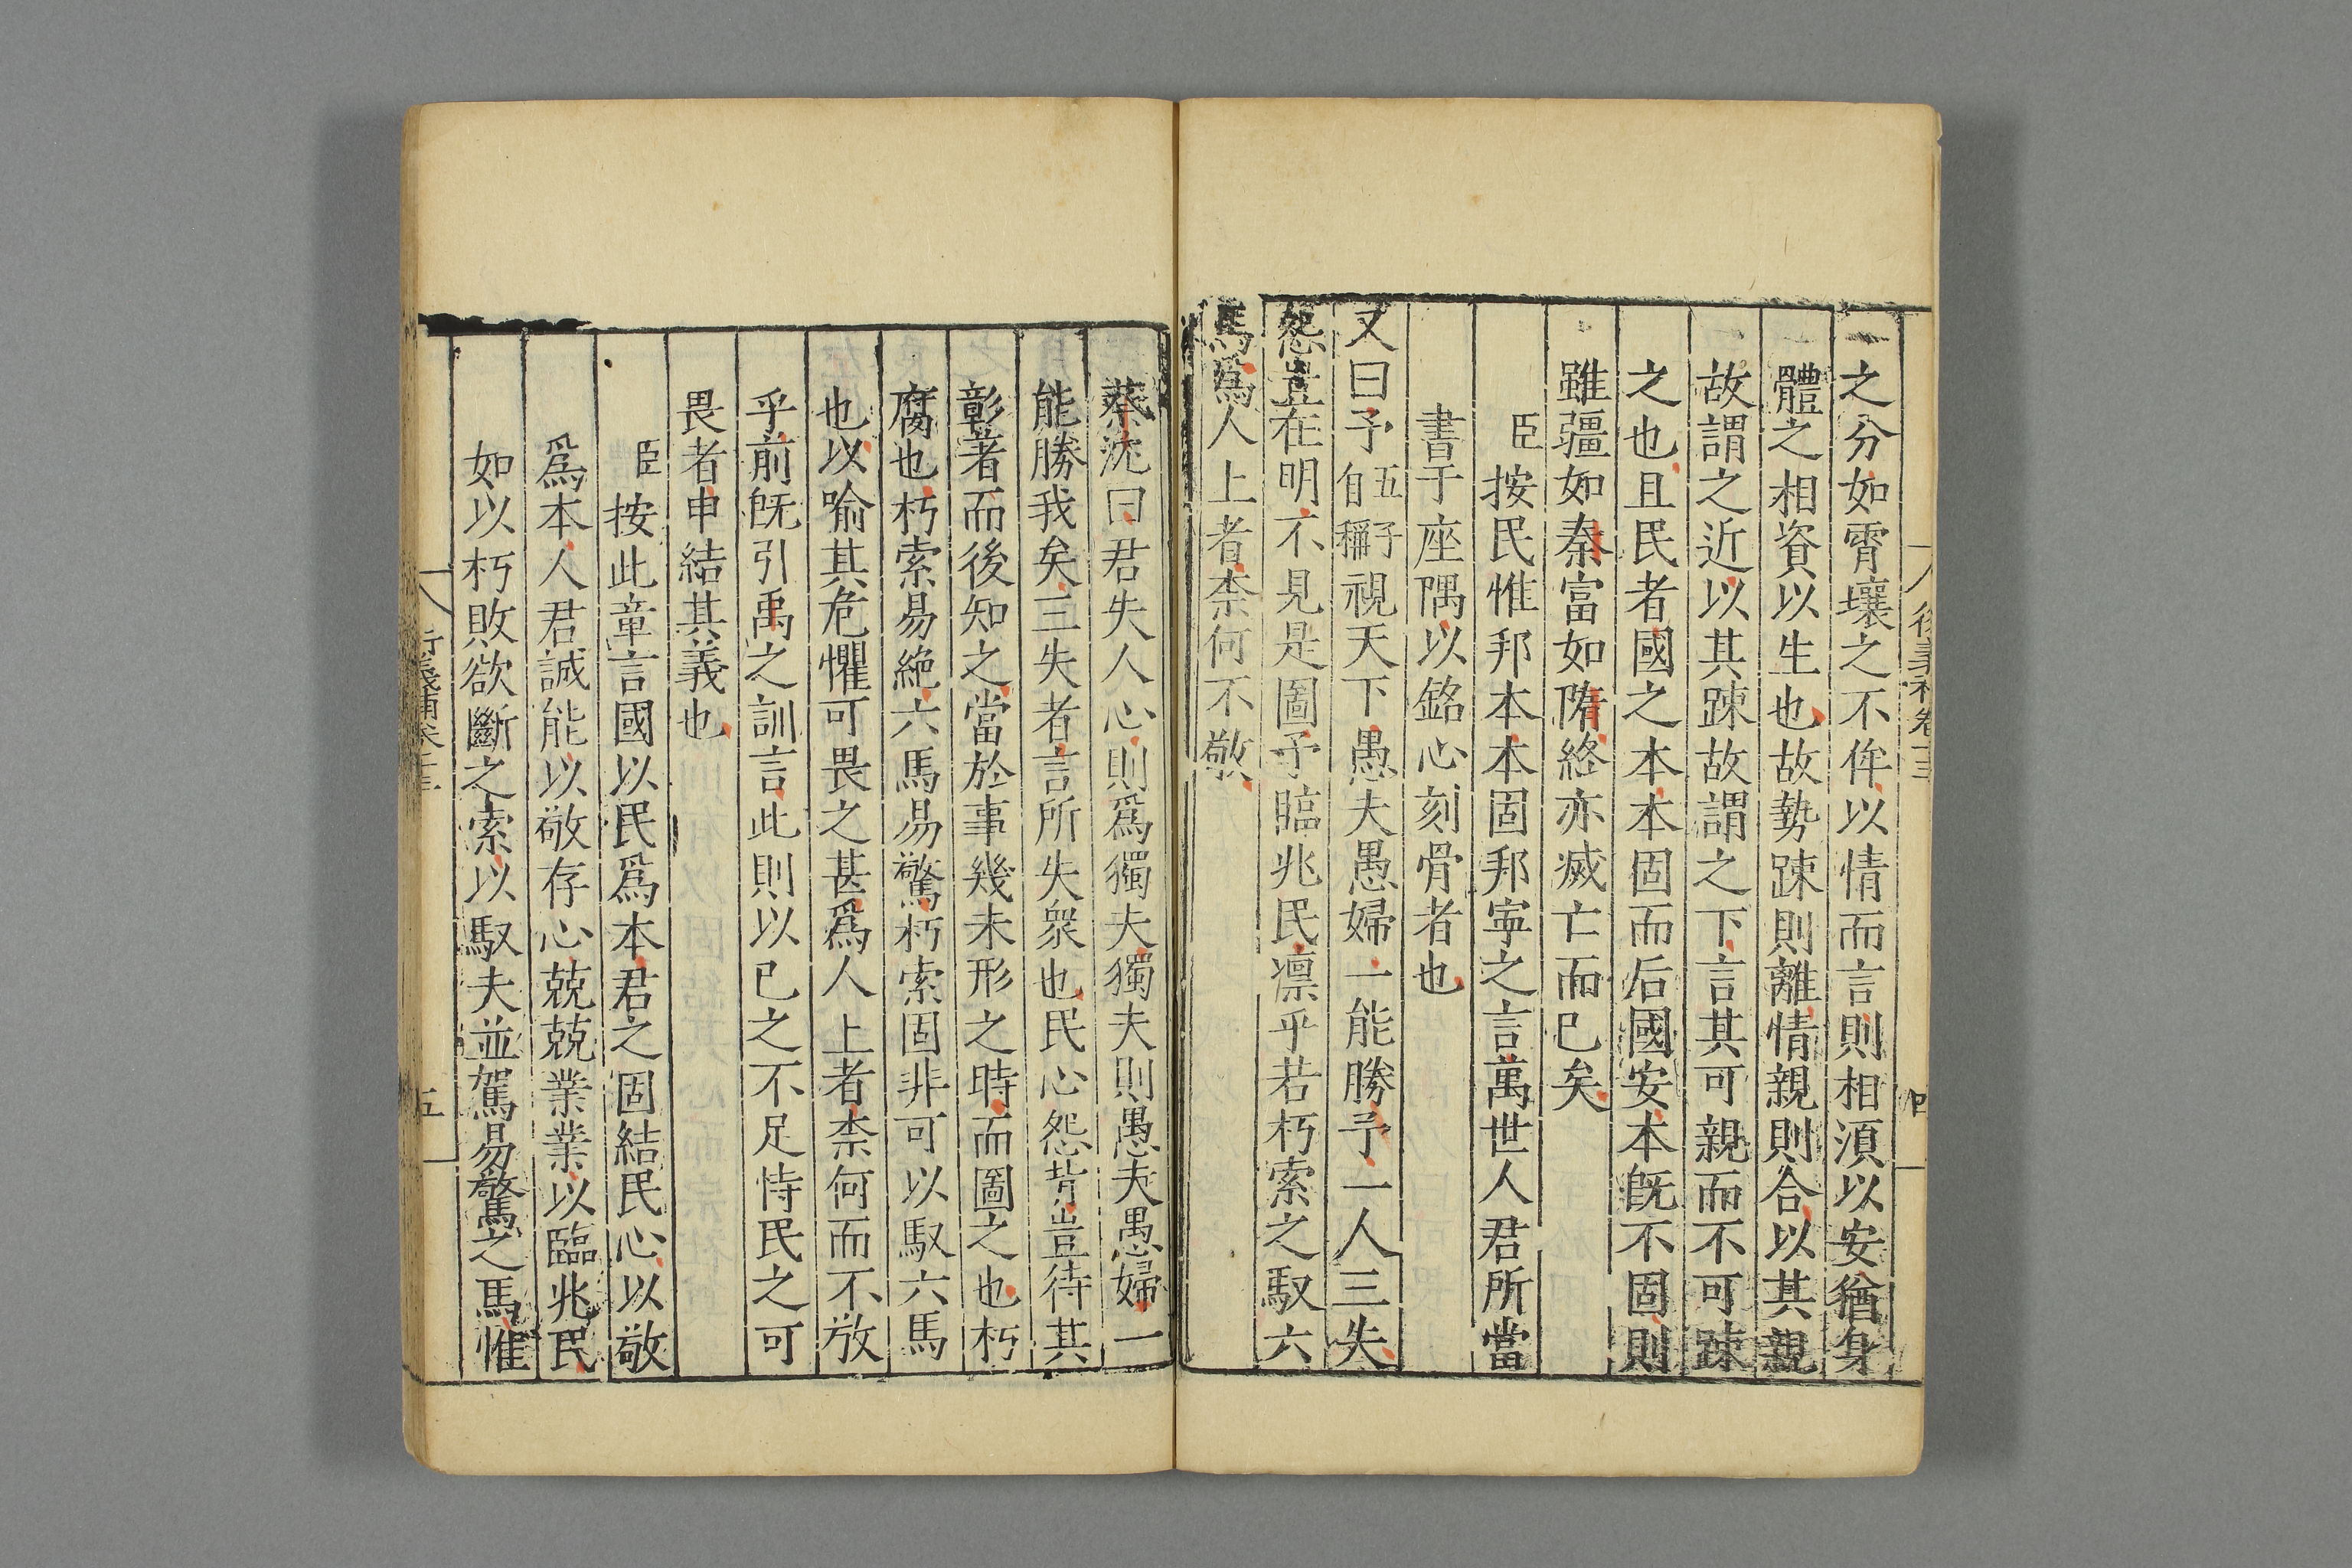 之分如霄壤之不侔以情而言則相須以安猶身
體之相資以生也故勢踈則離情親則合以其親
故謂之近以其踈故謂之下言其可親而不可踈
之也且民者國之本本固而后國安本旣不固則
雖疆如秦富如隋終亦滅亡而已矣
臣按民惟邦本本固邦寧之言萬世人君所當
書于座隅以銘心刻骨者也
又曰予五子自稱視天下愚夫愚婦一能勝予一人三失
怨豈在明不見是圖予臨兆民凛乎若朽索之馭六
馬爲人上者柰何不敬
蔡沈曰君失人心則爲獨夫獨夫則愚夫愚婦一
能勝我矣三失者言所失衆也民心怨背豈待其
彰著而後知之當於事幾未形之時而圖之也朽
腐也朽索易絶六馬易驚朽索固非可以馭六馬
也以喻其危懼可畏之甚爲人上者柰何而不敬
乎前旣引禹之訓言此則以已之不足恃民之可
畏者申結其義也
臣按此章言國以民爲本君之固結民心以敬
爲本人君誠能以敬存心兢兢業業以臨兆民
如以朽敗欲斷之索以馭夫並駕易驚之馬惟
五